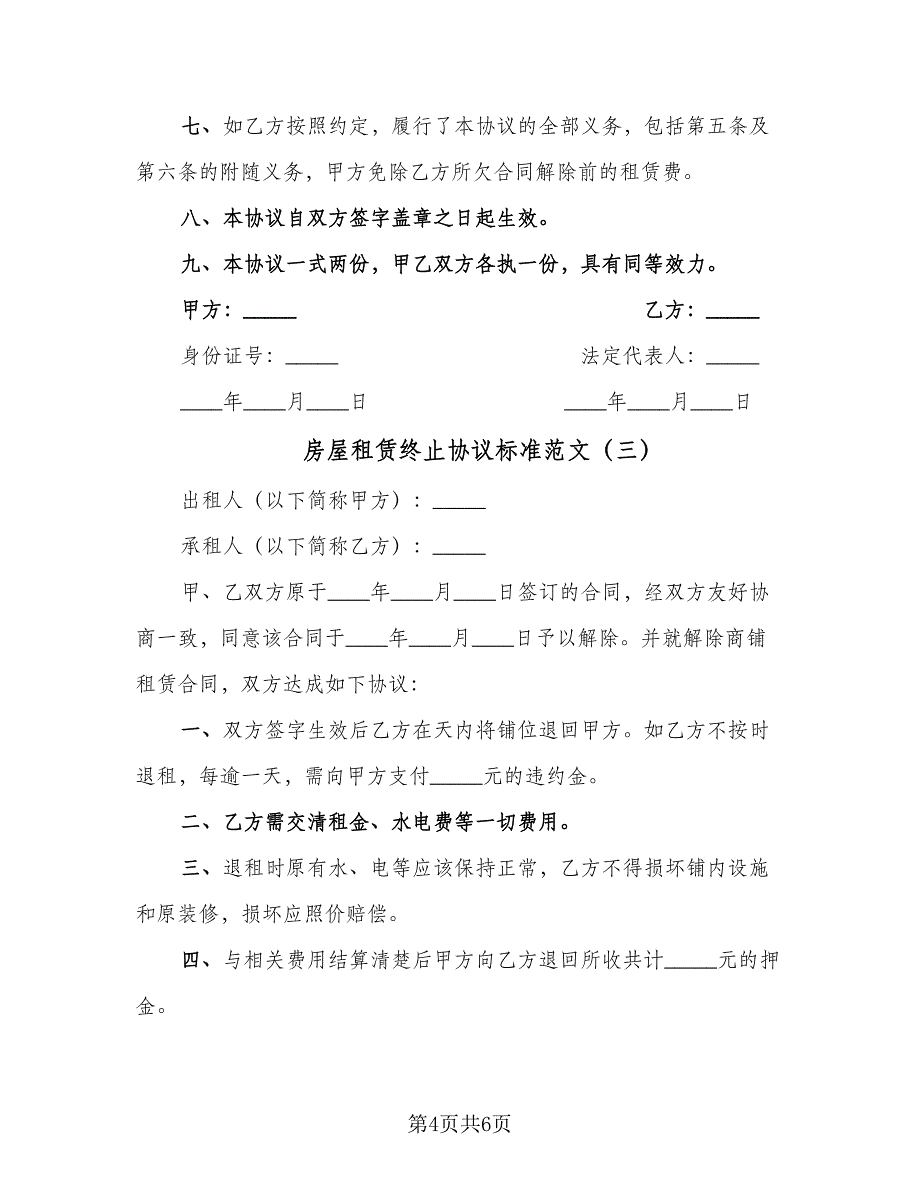 七、如乙方按照约定，履行了本协议的全部义务，包括第五条及
第六条的附随义务，甲方免除乙方所欠合同解除前的租赁费。
八、本协议自双方签字盖章之日起生效。
九、本协议一式两份，甲乙双方各执一份，具有同等效力。
甲方：_____ 乙方：_____
身份证号：_____ 法定代表人：_____
____年____月____日 ____年____月____日
房屋租赁终止协议标准范文（三）
出租人（以下简称甲方）：_____
承租人（以下简称乙方）：_____
甲、乙双方原于____年____月____日签订的合同，经双方友好协
商一致，同意该合同于____年____月____日予以解除。并就解除商铺
租赁合同，双方达成如下协议：
一、双方签字生效后乙方在天内将铺位退回甲方。如乙方不按时
退租，每逾一天，需向甲方支付_____元的违约金。
二、乙方需交清租金、水电费等一切费用。
三、退租时原有水、电等应该保持正常，乙方不得损坏铺内设施
和原装修，损坏应照价赔偿。
四、与相关费用结算清楚后甲方向乙方退回所收共计_____元的押
金。
第4页共6页